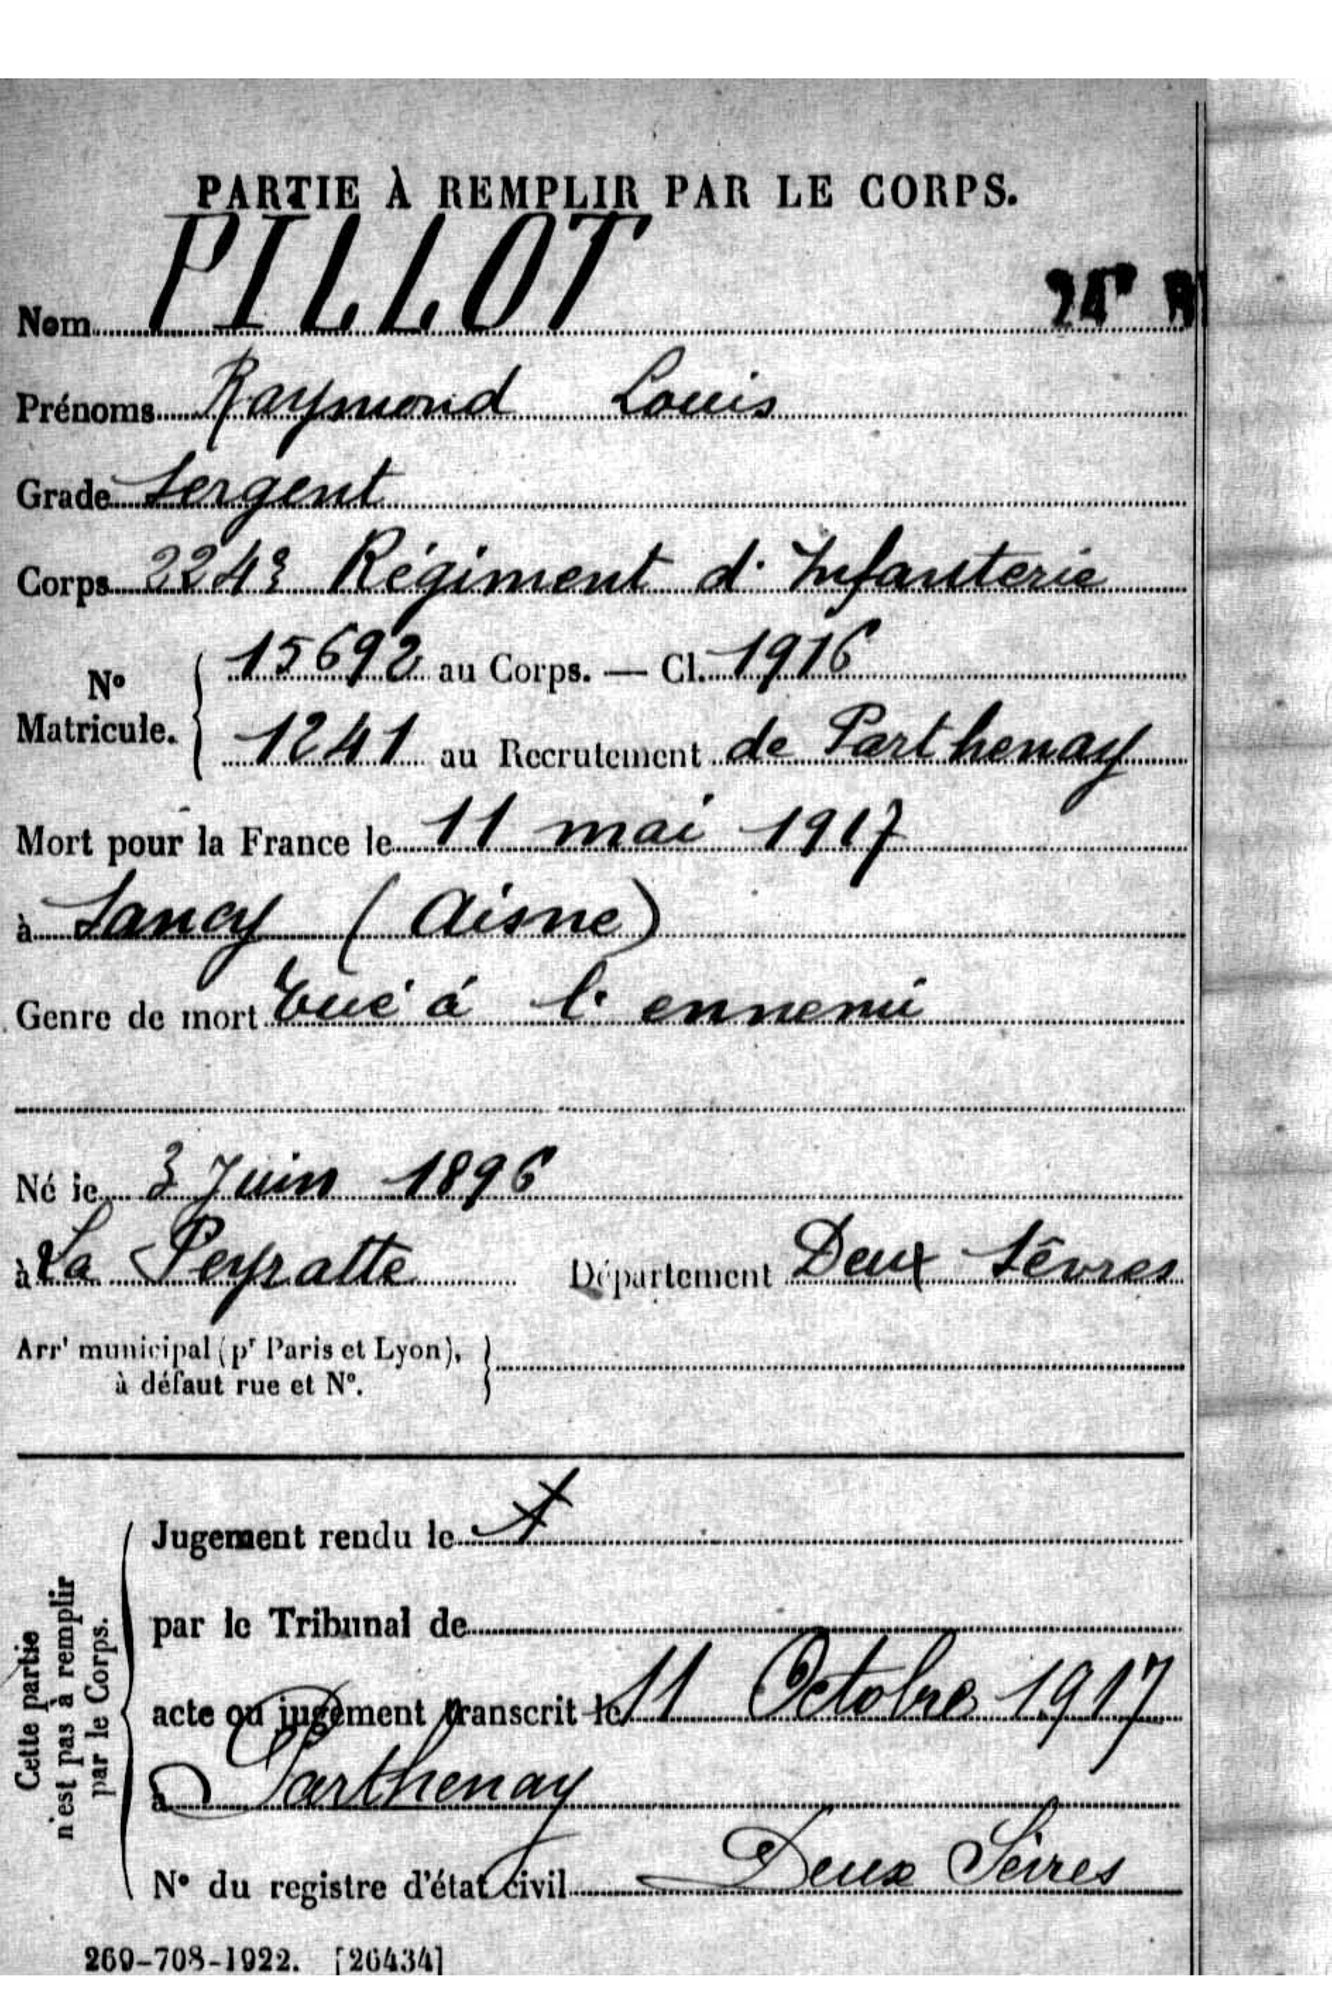 PARTIE À REMPLIR PAR LE CORPS.
Nom PILLOT
24e
Prénoms Raymond Louis
Grade Sergent
Corps 224e Régiment d'Infanterie
No Matricule. { 15692 au Corps. — Cl. 1916
1241 au Recrutement de Parthenay
Mort pour la France le 11 mai 1917
à Sancy (Aisne)
Genre de mort Tué à l'ennemi
Né le 3 Juin 1896
à La Peyratte Département Deux Sèvres
Arrt municipal (pr Paris et Lyon), }
à défaut rue et No.
Cette partie
n'est pas à remplir
par le Corps.
Jugement rendu le
par le Tribunal de
acte ou jugement transcrit le 11 Octobre 1917
à Parthenay
No du registre d'état civil Deux Sèvres
269-708-1922. [26434]